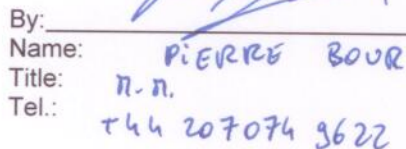 By:
Name: PiERRE BOUR
Title: M.M.
Tel.: +44 207074 9622